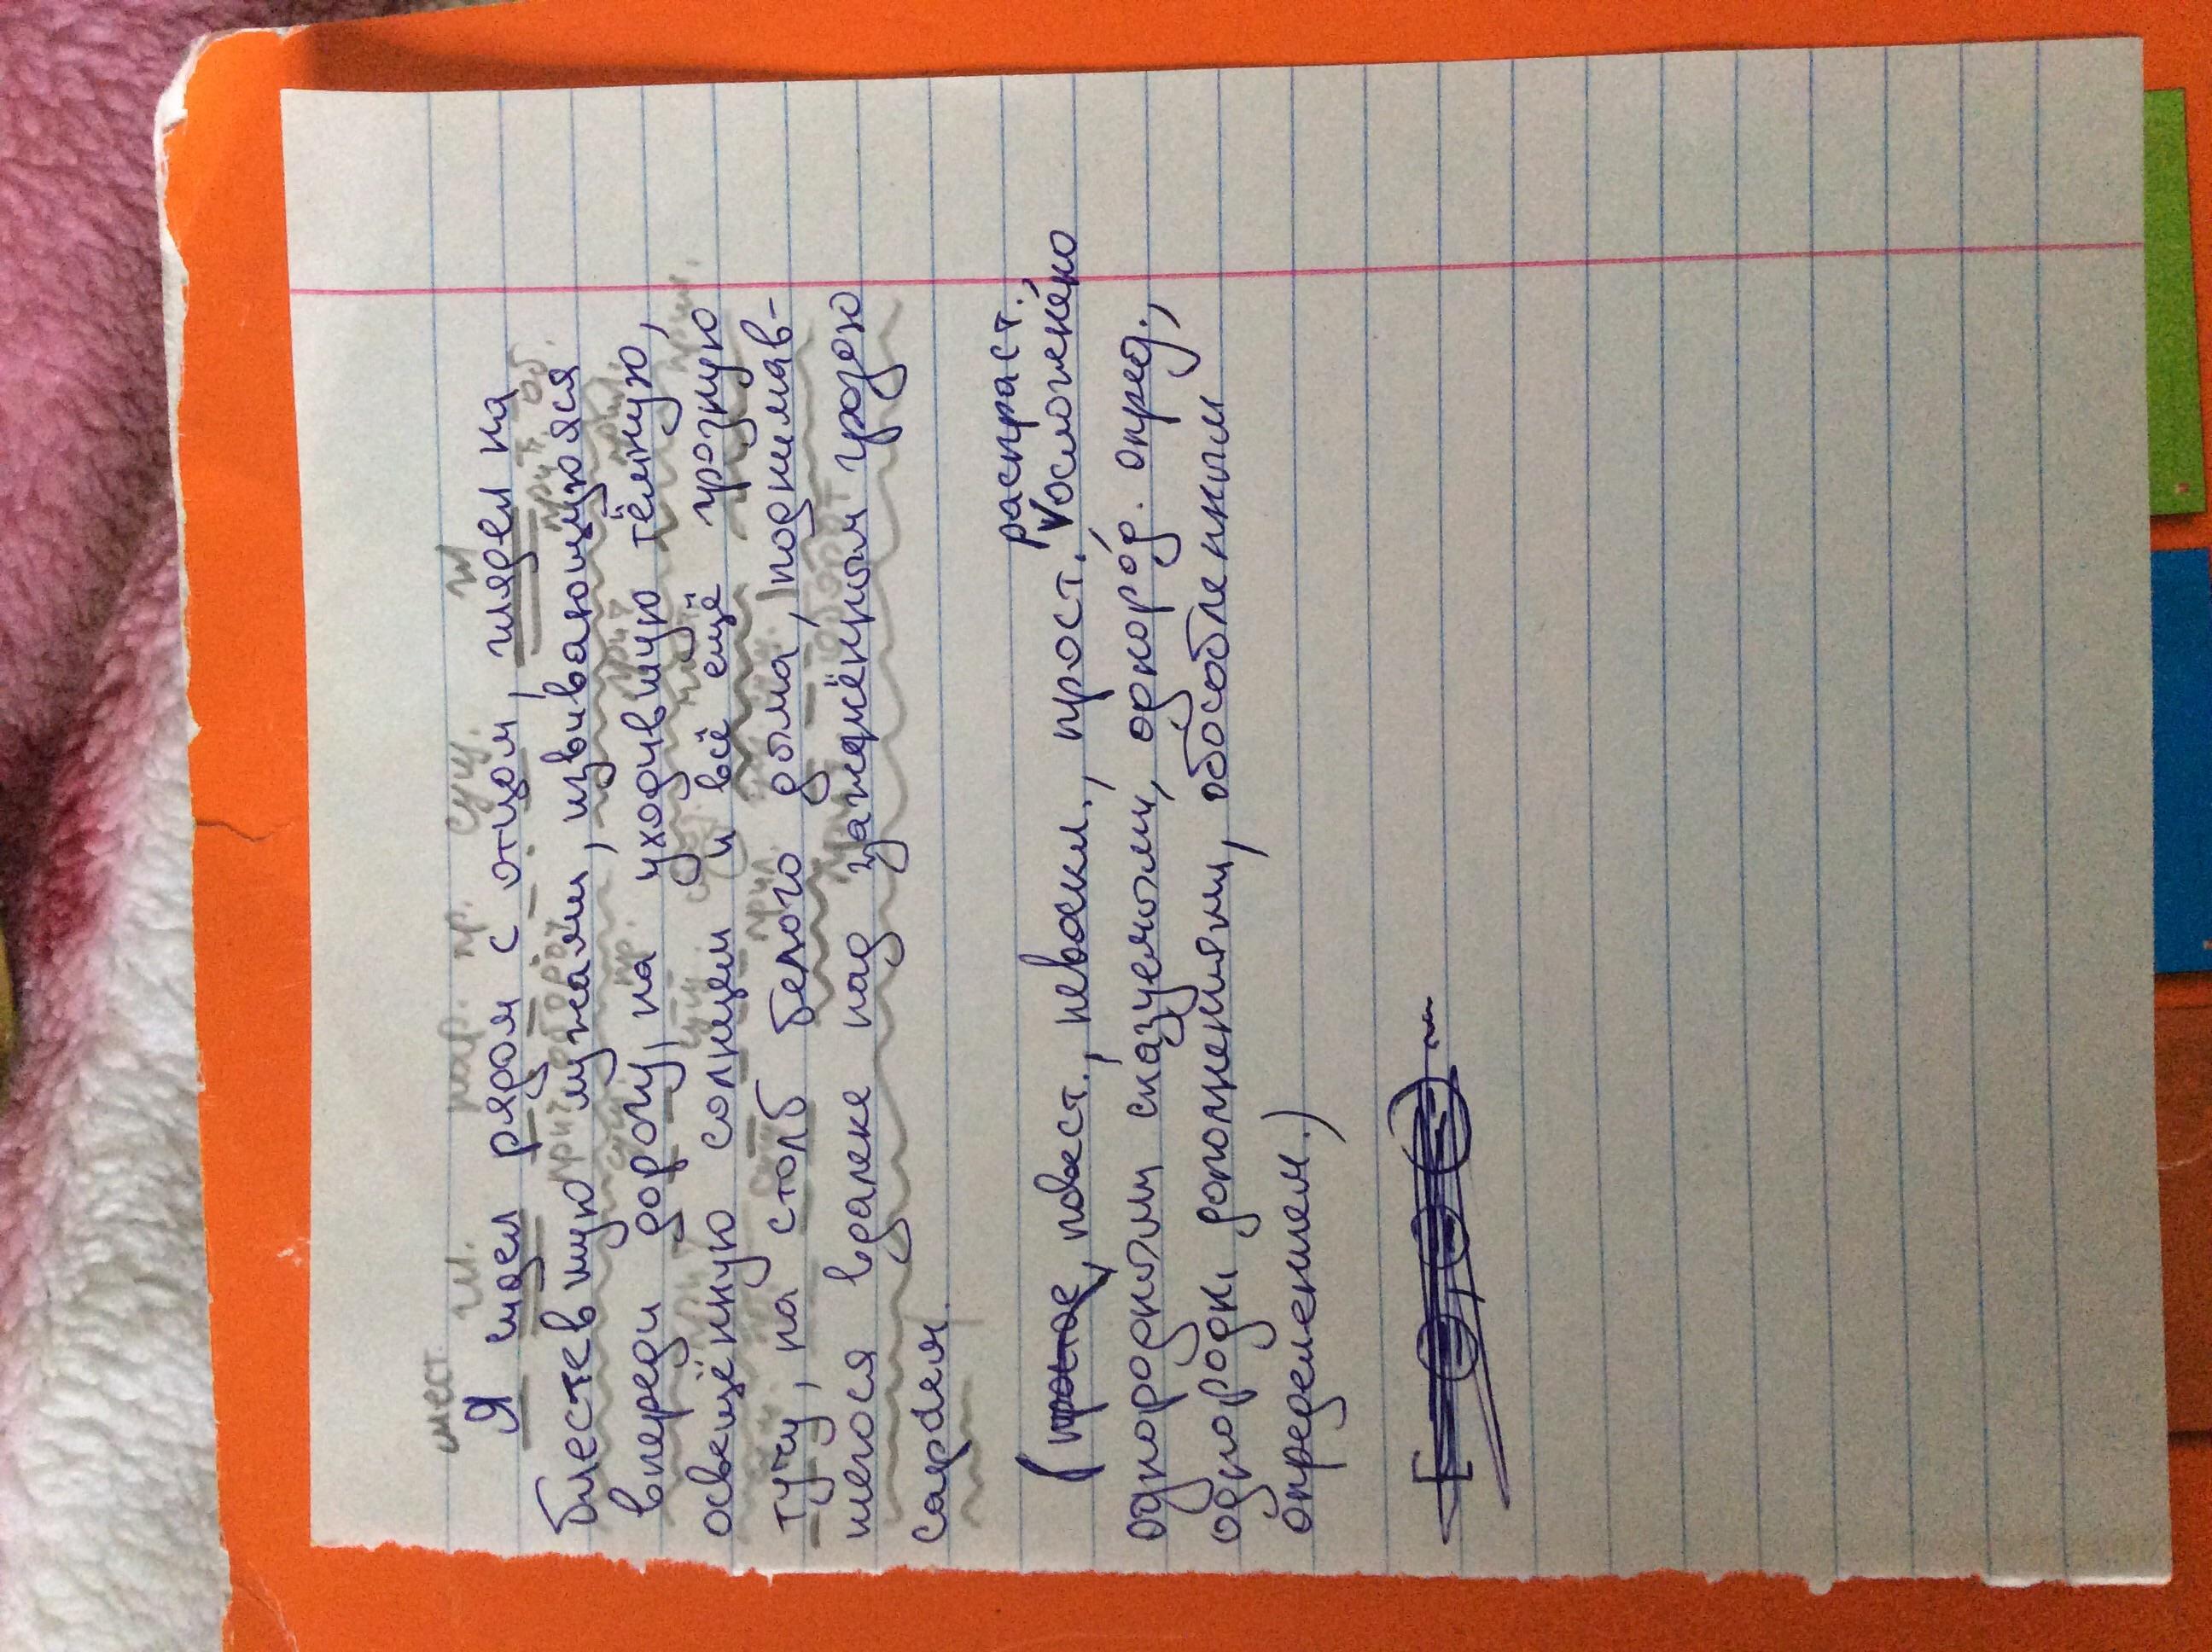 мест. гл. нар. пр. сущ. гл
Я шёл рядом с отцом, глядел на
блестевшую лужами, извивающуюся
впереди дорогу, на уходившую тёмную,
освещённую солнцем и всё ещё грозную
тучу, на столб белого дыма, поднимав-
шегося вдалеке над зажжённым грозою
сараем.
распраст.,
(повест., невоскл., прост. V осложнено
однородными сказуемыми, однород. опред.,
однородн. дополнениями, обособленным
определением.)